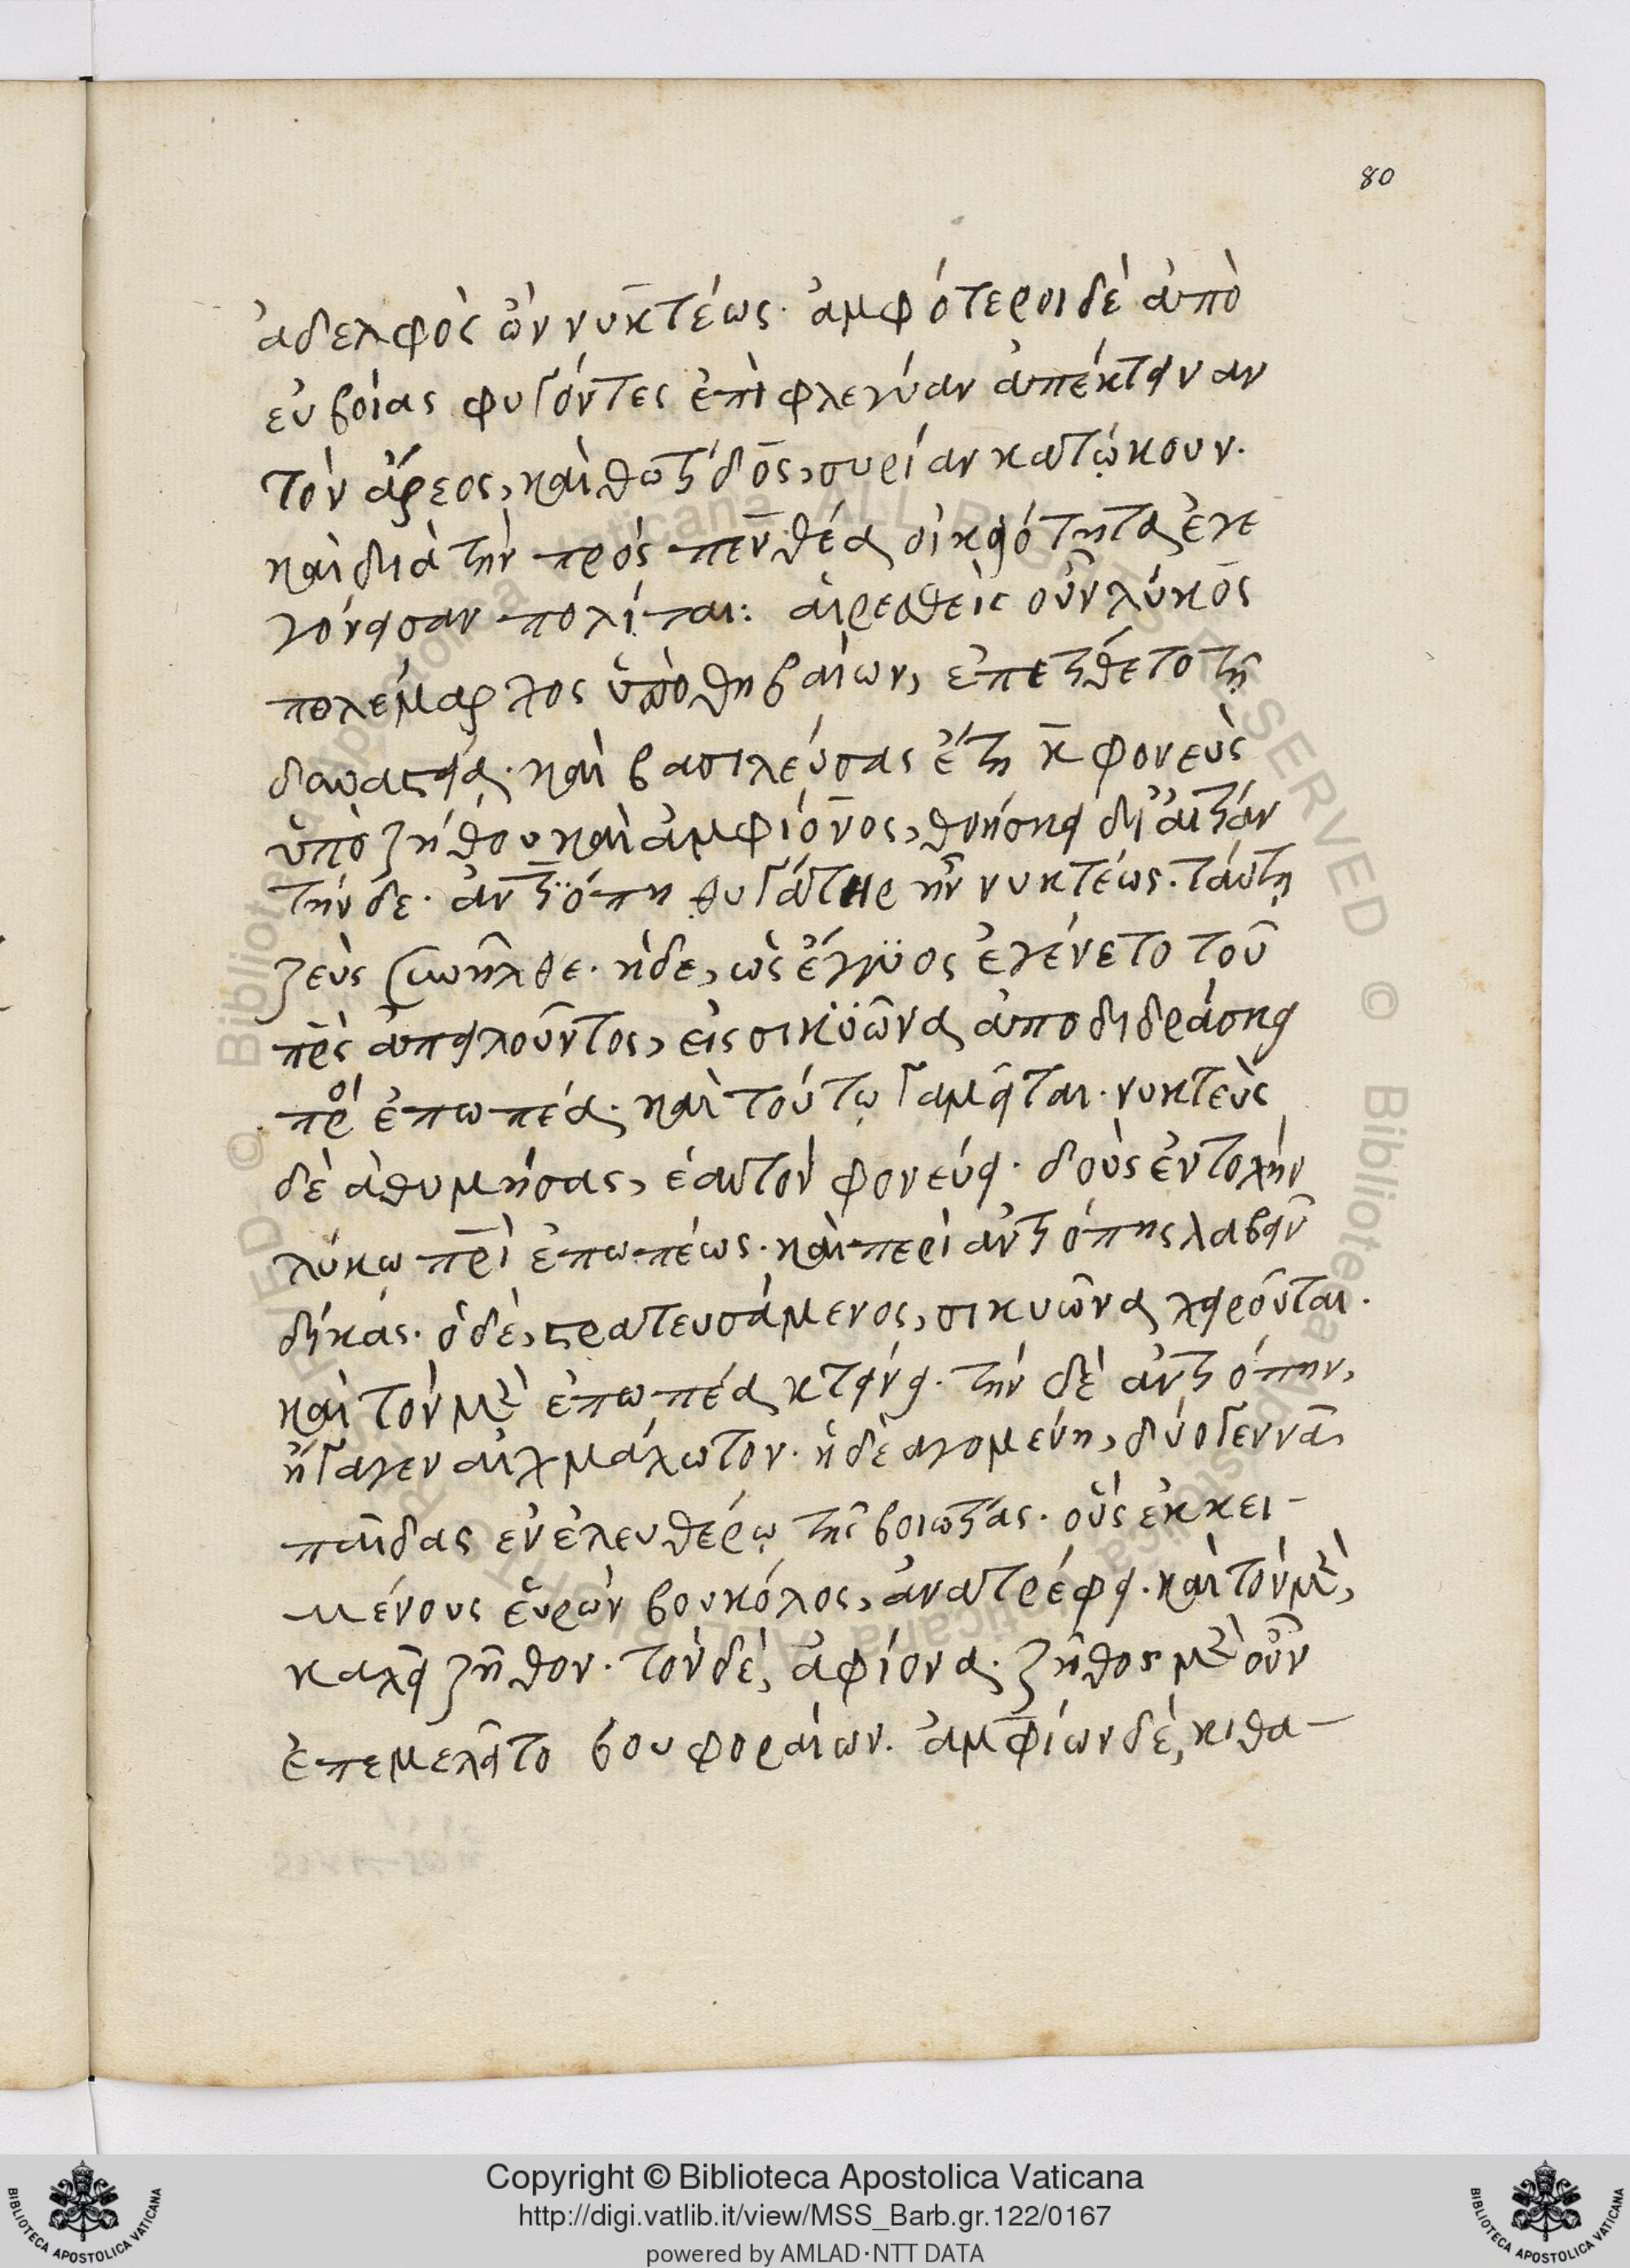 80
ἀδελφὸς ὢν νυκτέως· ἀμφότεροι δὲ ἀπὸ
εὐβοίας φυγόντες ἐπὶ φλεγύαν ἀπέκτειναν
τὸν ἄρεος, καὶ δωτίδος, συρίαν κατῴκουν.
καὶ διὰ τὴν πρὸς πενθέα οἰκειότητα ἐγε
γόνεισαν πολίται: αἱρεθεὶς οὖν λύκος
πολέμαρχος ὑπὸ θηβαίων, ἐπετίθετο τῇ
δυναστείᾳ· καὶ βασιλεύσας ἔτη κ φονευς
ὑπὸ ζήθου καὶ ἀμφίονος, θνήσκει δι' αἰτίαν
τήνδε· ἀντιόπη θυγάτηρ ἦν νυκτέως. ταύτῃ
ζεὺς συνῆλθε· ἡ δὲ, ὡς ἔγγυος ἐγένετο τοῦ
πρς ἀπειλοῦντος, εἰς σικυῶνα ἀποδιδράσκει
πρ ἐπωπέα· καὶ τούτῳ γαμεῖται· νυκτεὺς
δὲ ἀθυμήσας, ἑαυτὸν φονεύει· δοὺς ἐντολὴν
λύκῳ πρὶ ἐπωπέως· καὶ περὶ ἀντιόπης λαβεῖν
δίκας· ὁ δὲ, στρατευσάμενος, σικυῶνα χειροῦται.
καὶ τὸν μὲν ἐπωπέα κτείνει· τὴν δὲ ἀντιόπην,
ἤγαγεν αἰχμάλωτον· ἡ δὲ ἀγομένη, δύο γεννᾶ
παῖδας ἐν ἐλευθέρῳ τῆς βοιωτίας· οὓς ἐκκει-
μένους εὑρὼν βουκόλος, ἀνατρέφει· καὶ τὸν μὲν,
καλεῖ ζῆθον· τὸν δὲ, ἀφίονα· ζῆθος μὲν οὖν
ἐπεμελεῖτο βουφοραίων. ἀμφίων δὲ, κιθα-
Copyright © Biblioteca Apostolica Vaticana
http://digi.vatlib.it/view/MSS_Barb.gr.122/0167
powered by AMLAD·NTT DATA
BIBLIOTECA APOSTOLICA VATICANA
BIBLIOTECA APOSTOLICA VATICANA